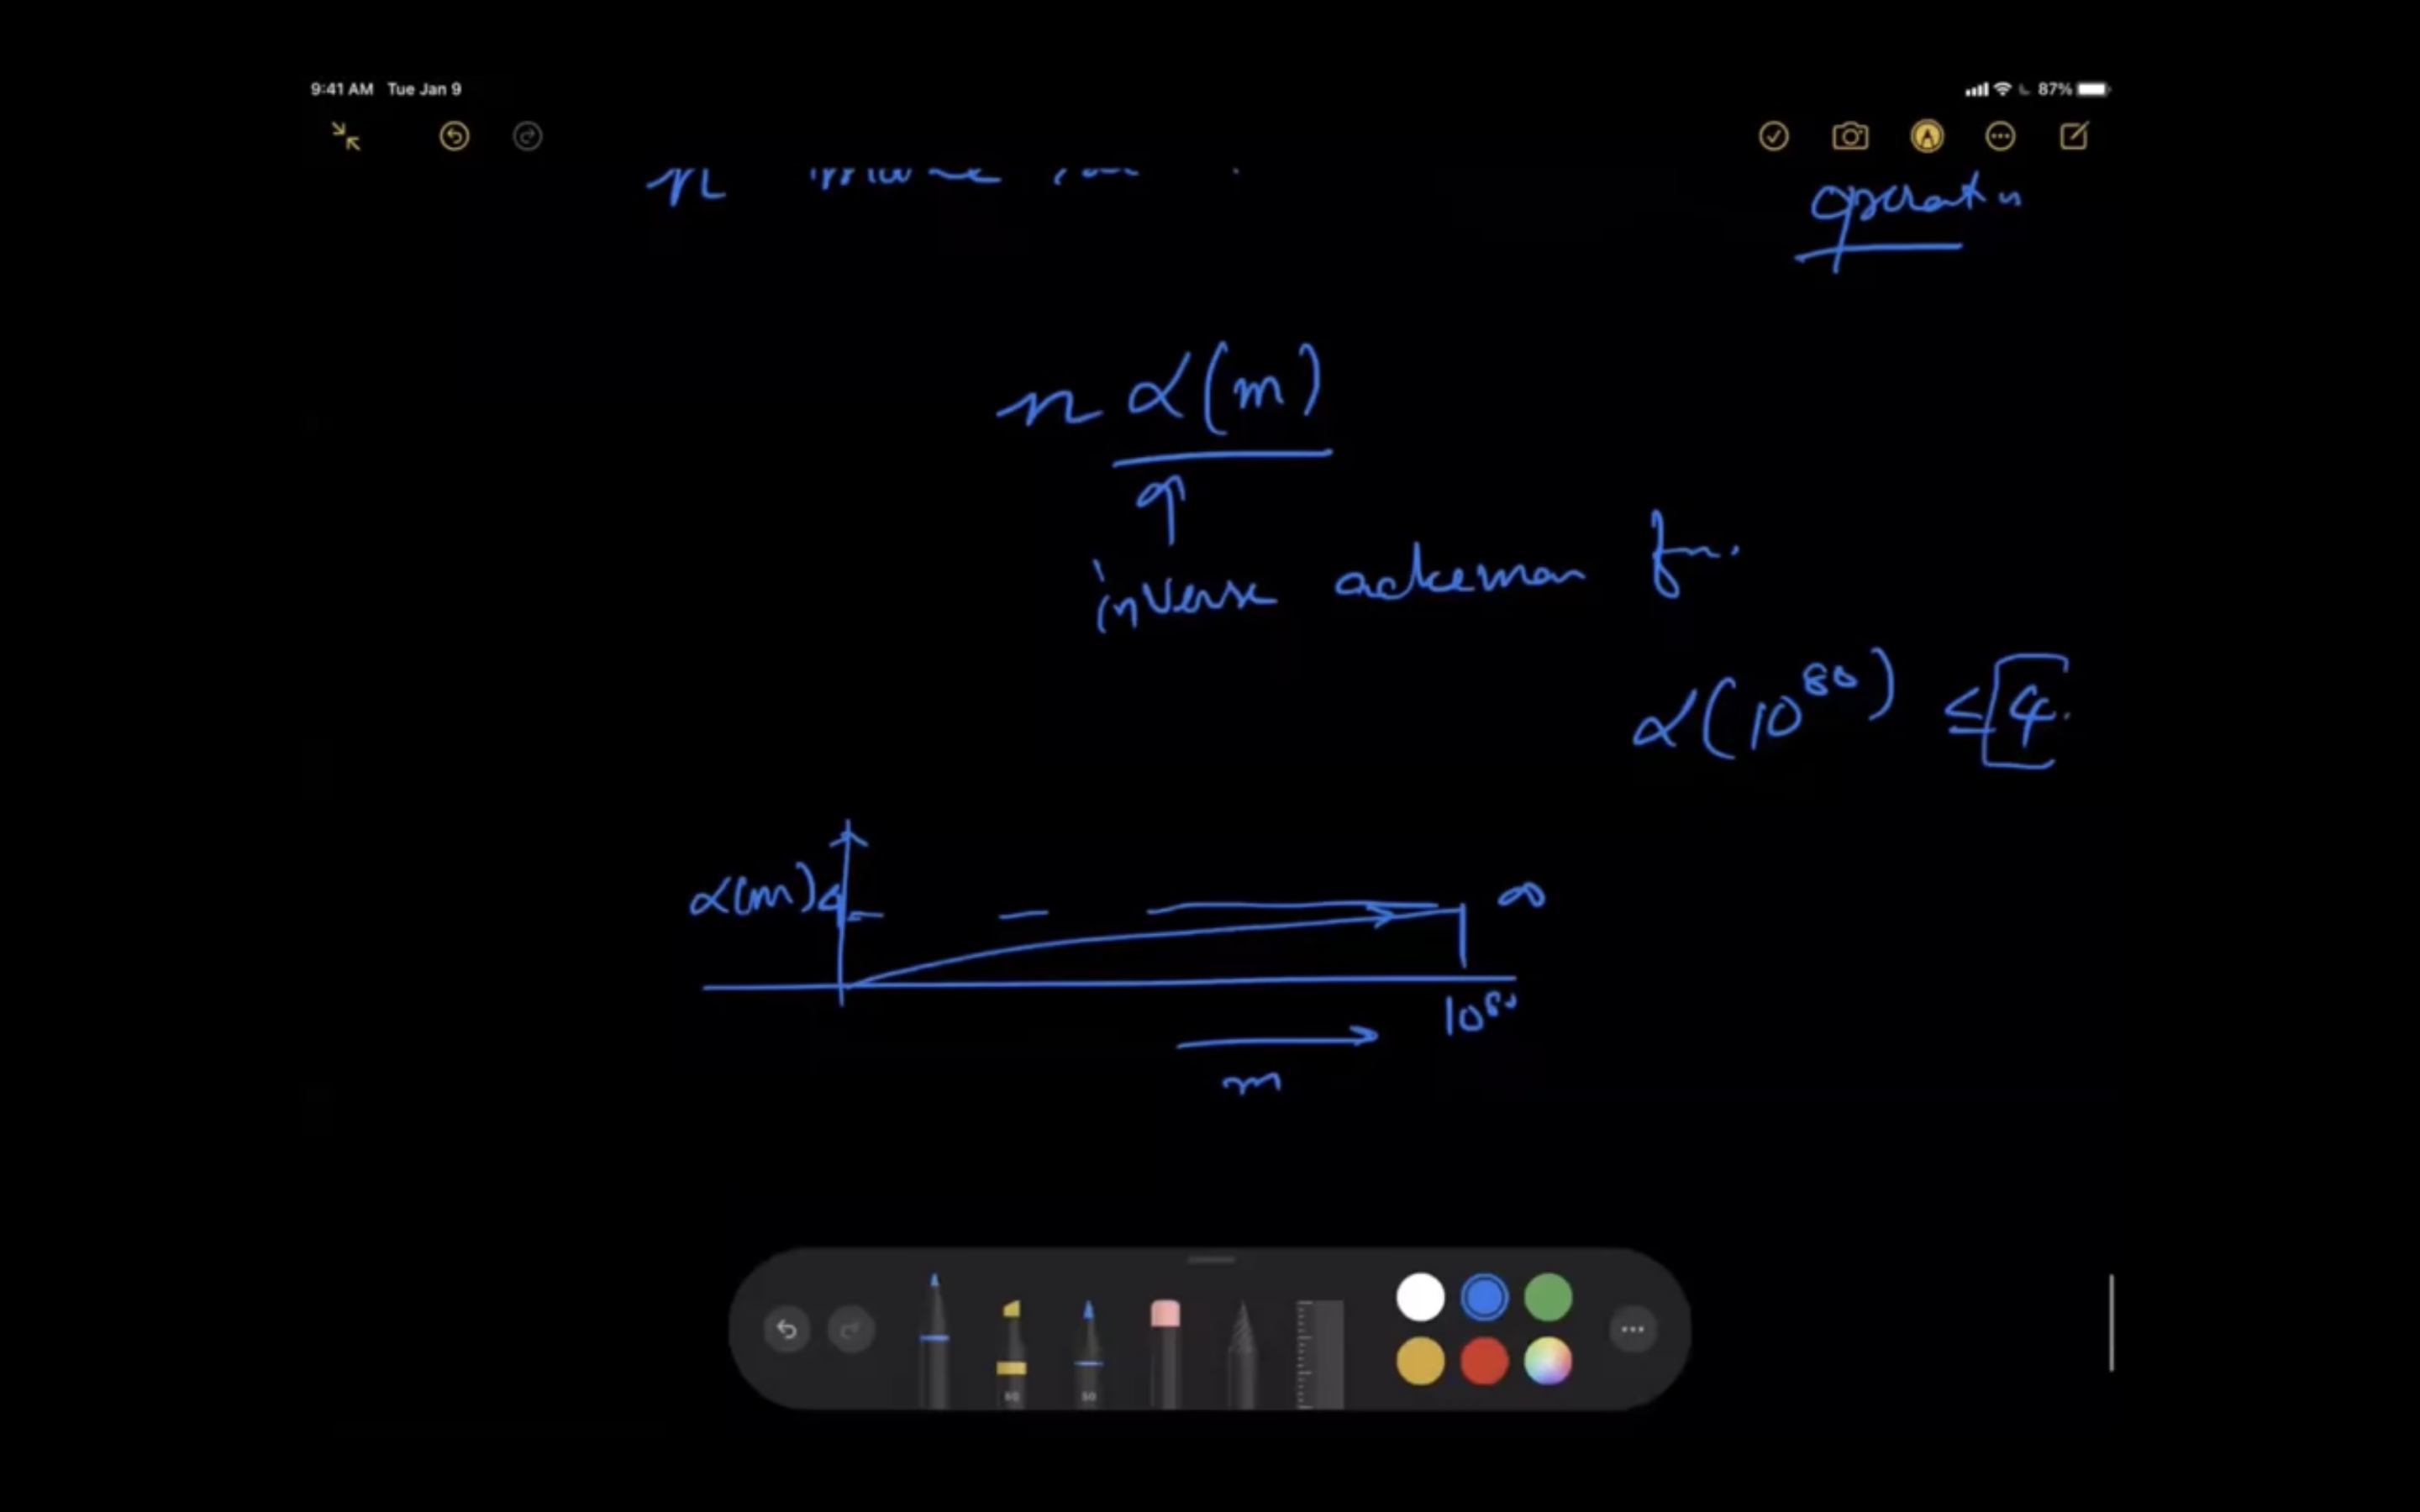 9:41 AM Tue Jan 9
87%
n
operatn
n α(m)
inverse ackeman fn.
α(10^80) ≤ 4.
α(m) 4
∞
10^80
m
80
50